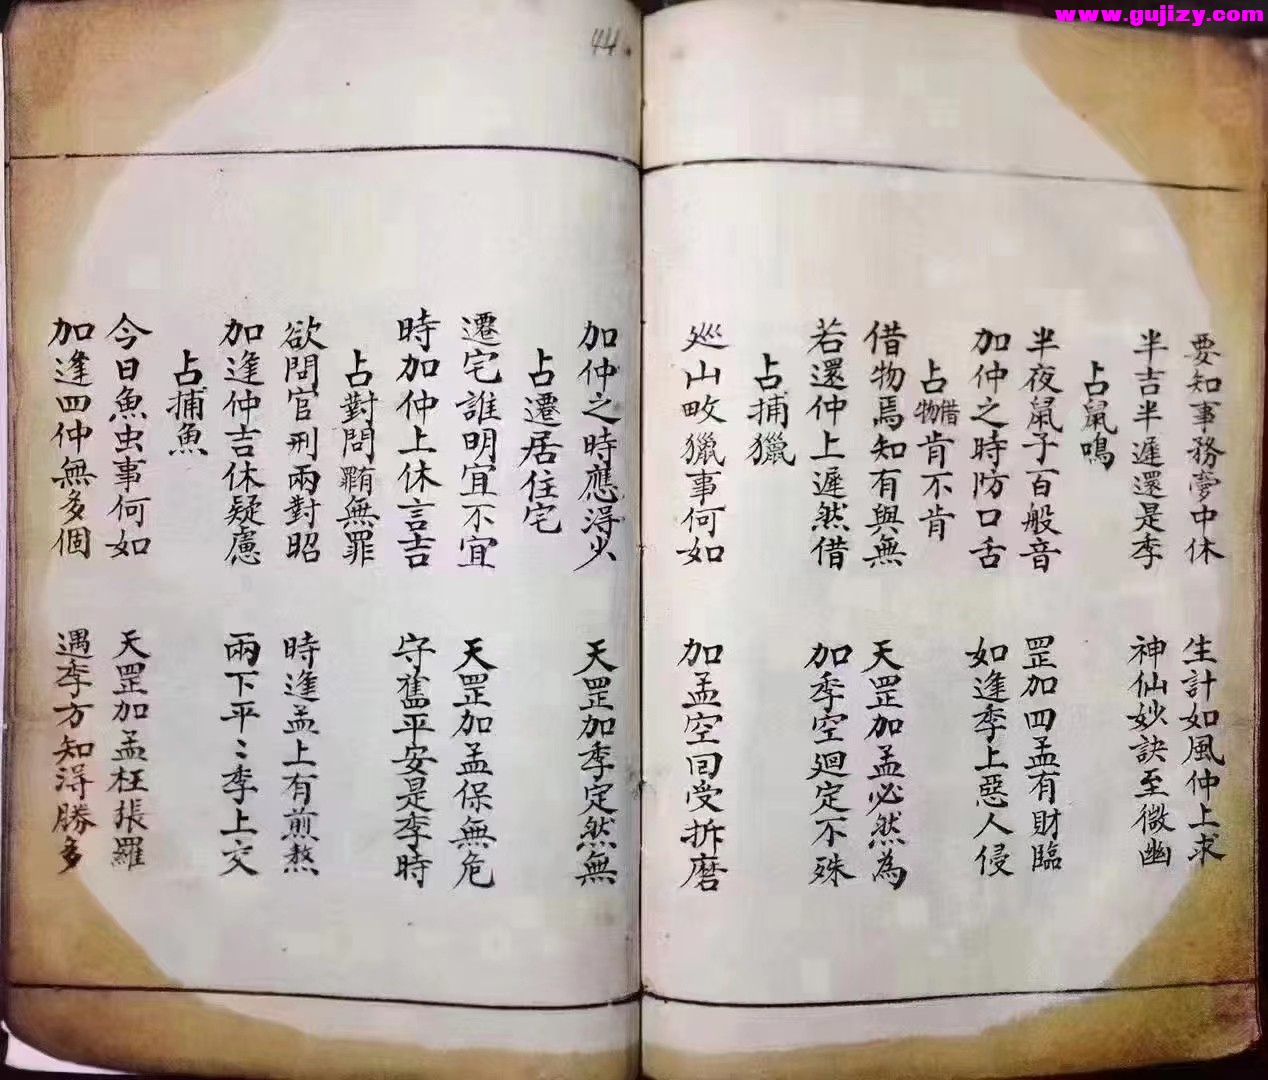 www.gujizy.com
44
要知事務夢中休 生計如風仲上求
半吉半遲還是季 神仙妙訣至微幽
占鼠鳴
半夜鼠子百般音 罡加四孟有財臨
加仲之時防口舌 如逢季上惡人侵
占借物肯不肯
借物焉知有與無 天罡加孟必然為
若還仲上遲然借 加季空迴定不殊
占捕獵
巡山畋獵事何如 加孟空回受折磨
加仲之時應淂少 天罡加季定然無
占遷居住宅
遷宅誰明宜不宜 天罡加孟保無危
時加仲上休言吉 守舊平安是季時
占對問有無罪
欲問官刑兩對昭 時逢孟上有煎熬
加逢仲吉休疑慮 兩下平〻季上交
占捕魚
今日魚虫事何如 天罡加孟枉張羅
加逢四仲無多個 遇季方知淂勝多